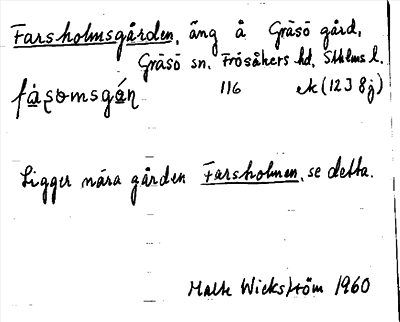 Farsholmsgården, äng å Gräsö gård,
Gräsö sn. Frösåkers hd, Sthlms l.
fa̱ʂomsgá̱ɳ 116 ek (12 J 8 j)
Ligger nära gården Farsholmen, se detta.
Malte Wickström 1960